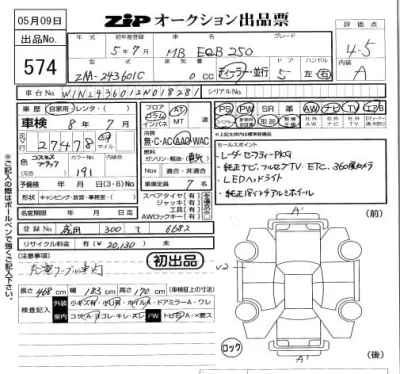 05月09日
ZiP オークション出品票
出品No.
574
年式
初年度登録
車名
グレード
評価点
5年7月
MB EQB 250
4.5
型式
ZAA-243601C
0 CC
ディーラー・並行
ドア
5
ハンドル
左・右
内装
A
車台No.
W1N2436012N018281
シリアルNo.
車歴
自家用・レンタ・( )
車検 8年7月
走行 27478 マイル
コスモスブラック
カラーNo.
191
予備検 年 月 日 (3・8)No.
形状 キャンピング・放置・事務室・( )
名変期限 年 月 日
登録No.
300
6682
リサイクル料金 有 ( 20,130 ) 未
フロア
コラム
インパネ
AT
MT
速
冷房
無・C・AC・AAC・WAC
燃料
ガソリン・軽油・(電気)
Nox 適合・非適合
乗車定員
7 名
スペアタイヤ( )
ジャッキ( )
工具( )
AWロックキー( )
PS PW SR 革 AW ナビ TV エアB
セールスポイント
・レーダーセーフティPKG
・純正ナビ、フルセグTV、ETC、360度カメラ
・LEDヘッドライト
・純正18インチアルミホイル
※ご記入の際はボールペンで強くご記入下さい。
注意事項
充電ケーブル車内
初出品
長さ 468 cm 幅 183 cm 高さ 170 cm (車検証上の寸法)
検査記入
外装
小キズ・ホイルA・ドアミラーA・ワレ
室内
コゲA・ヨゴレ・キレ・スレ
F/W
トビ石A・×要ス
A'
(前)
V2
ロック
A'
(後)